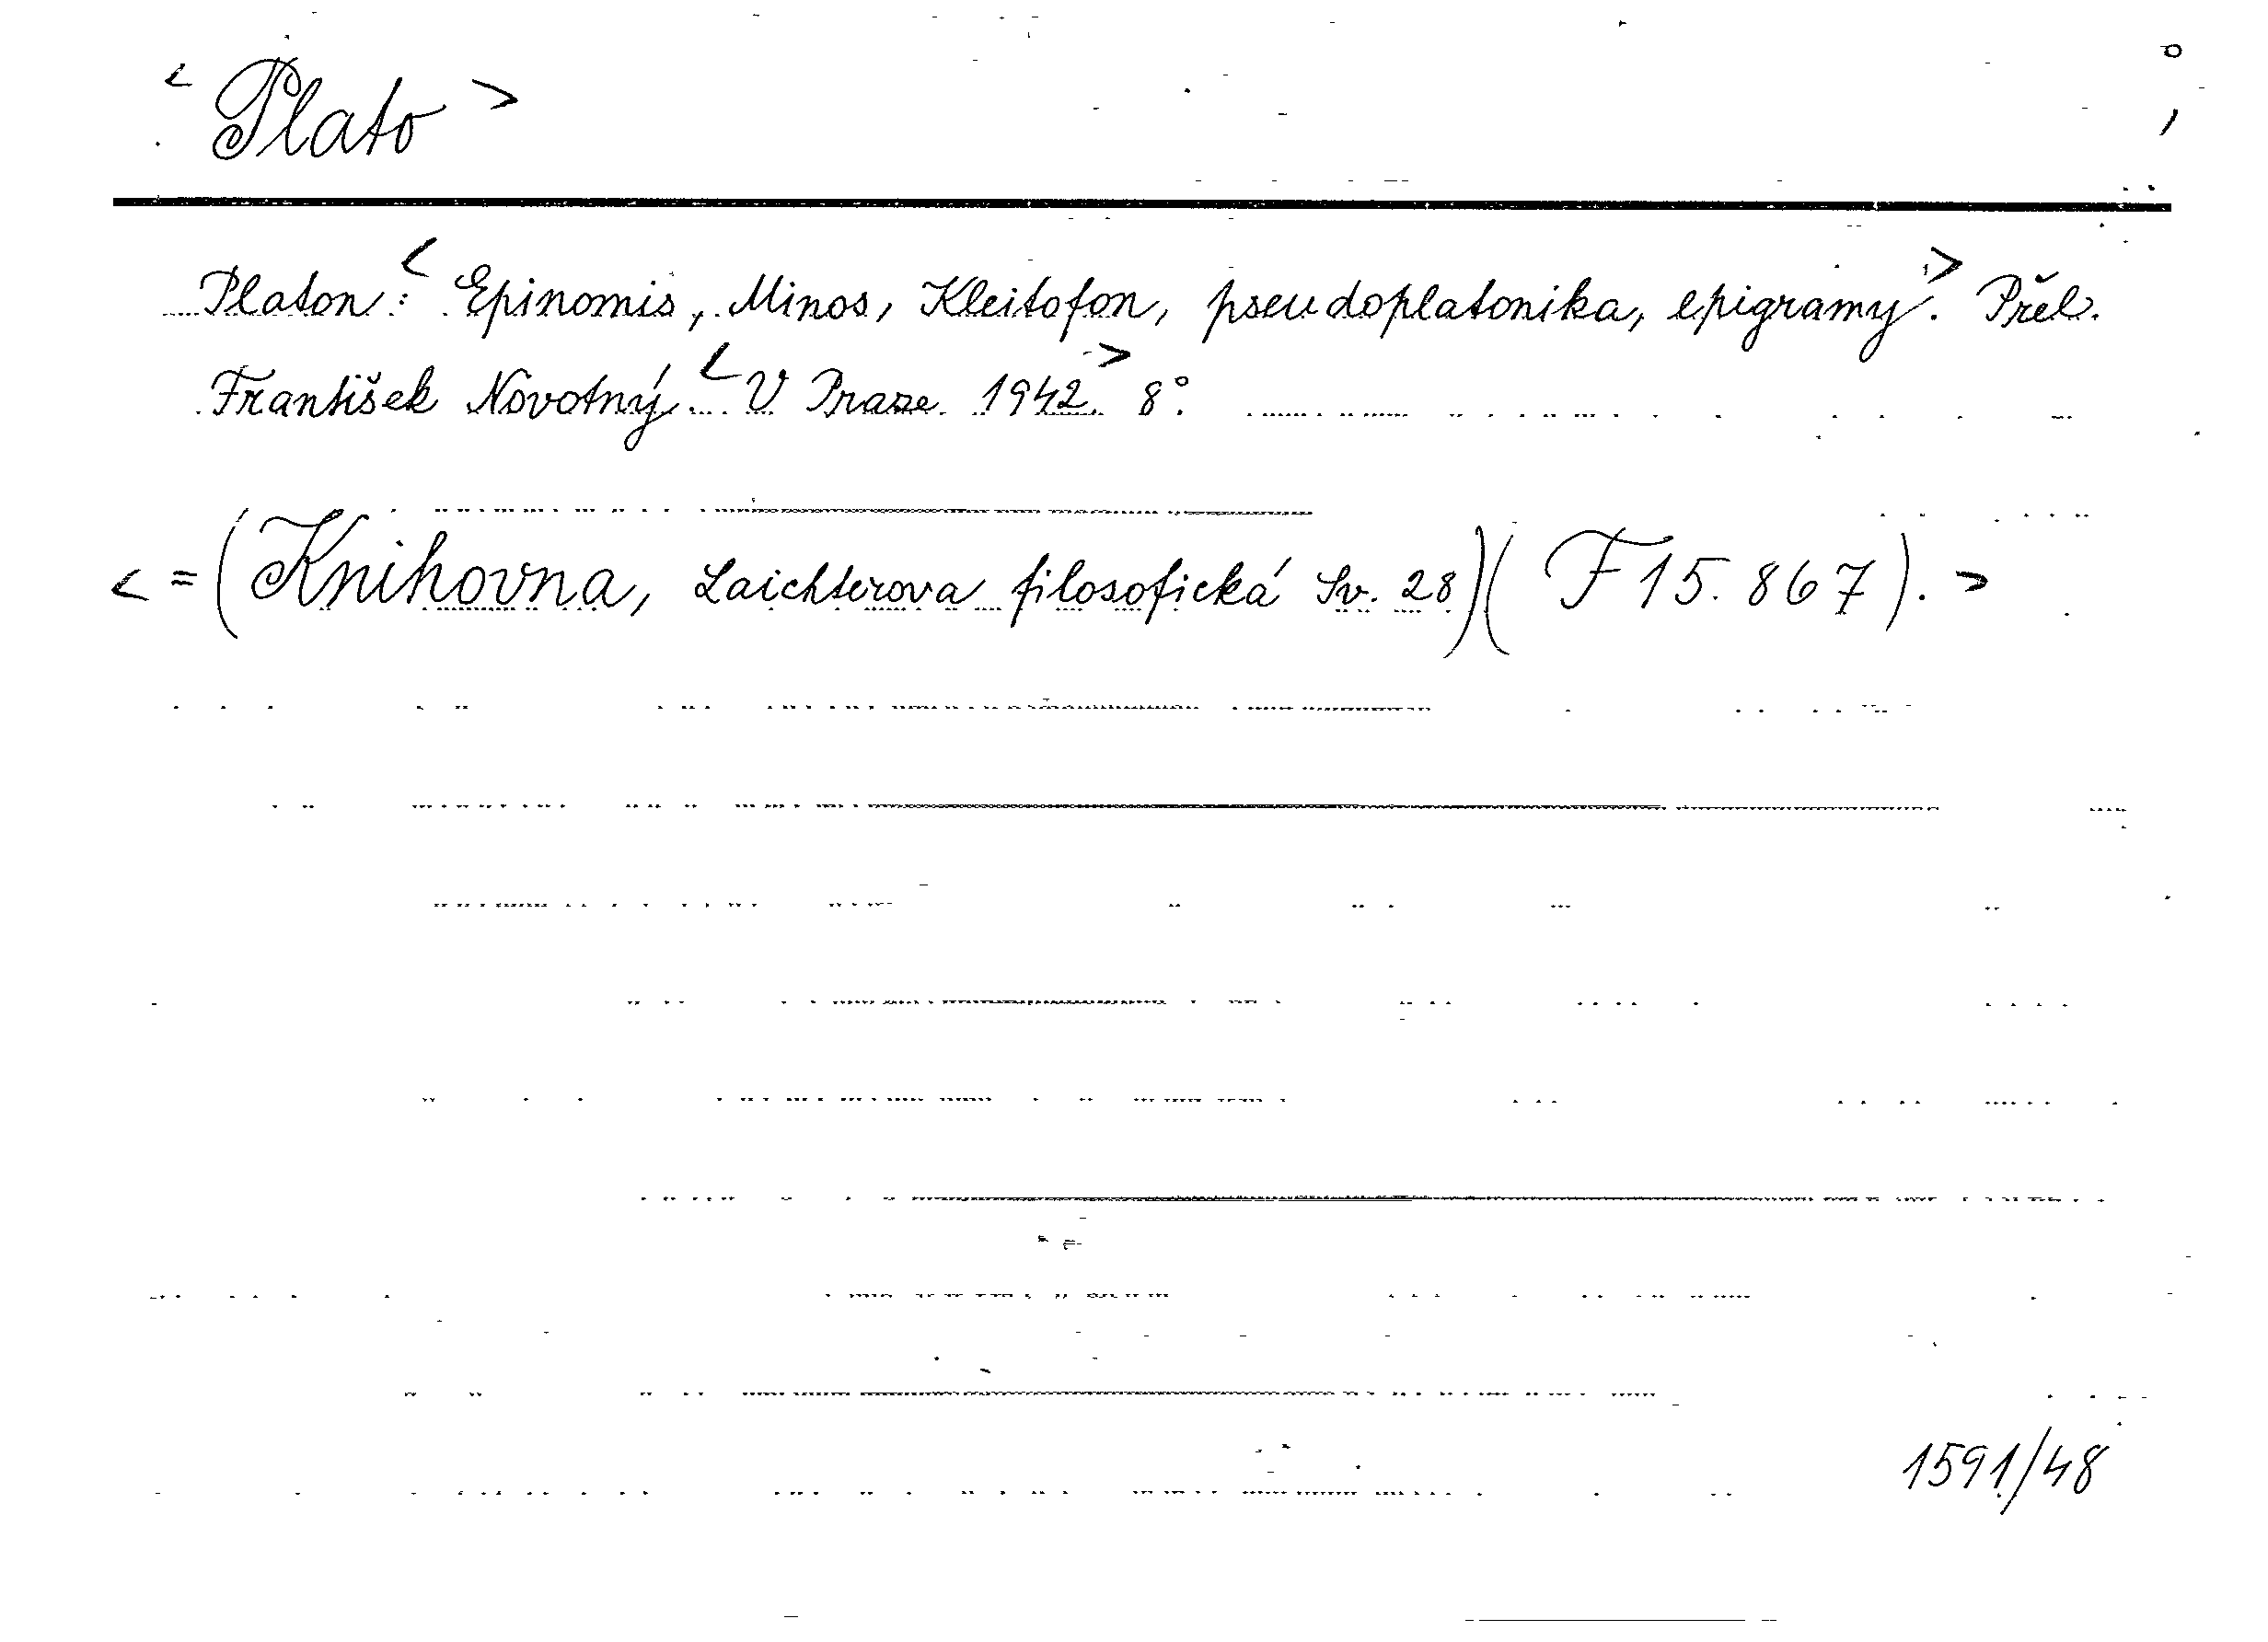 < Plato >
Platon: < Epinomis, Minos, Kleitofon, pseudoplatonika, epigramy >. Přel.
František Novotný. < V Praze 1942. > 8°.
< = (Knihovna, Laichterova filosofická Sv. 28) (F 15.867). >
1591/48